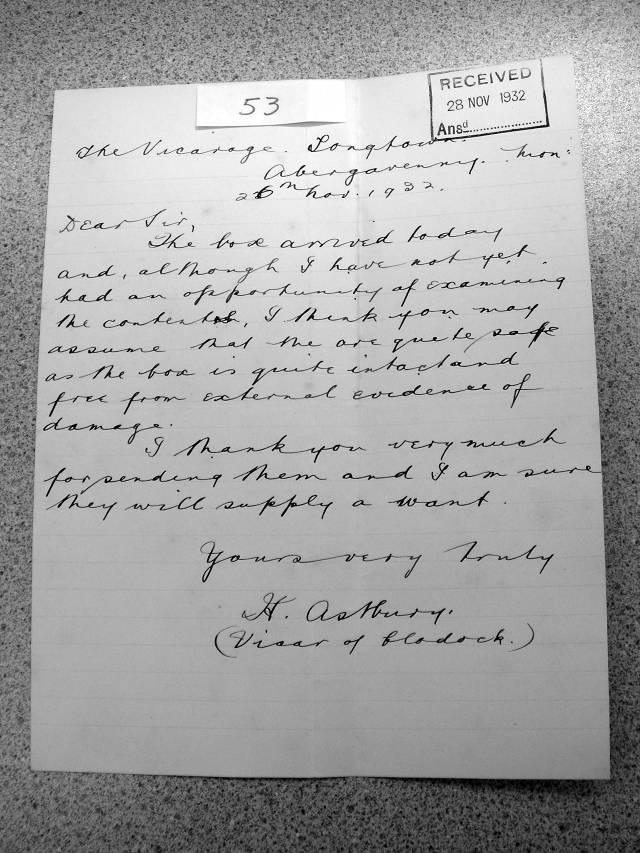 53
RECEIVED
28 NOV 1932
Ansd....................
The Vicarage. Longtown.
Abergavenny. Mon:
26th Nov. 1932.
Dear Sir,
The box arrived today
and, although I have not yet
had an opportunity of examining
the contents, I think you may
assume that the are quite safe
as the box is quite intact and
free from external evidence of
damage.
I thank you very much
for sending them and I am sure
they will supply a want.
Yours very truly
H. Astbury.
(Vicar of Clodock.)